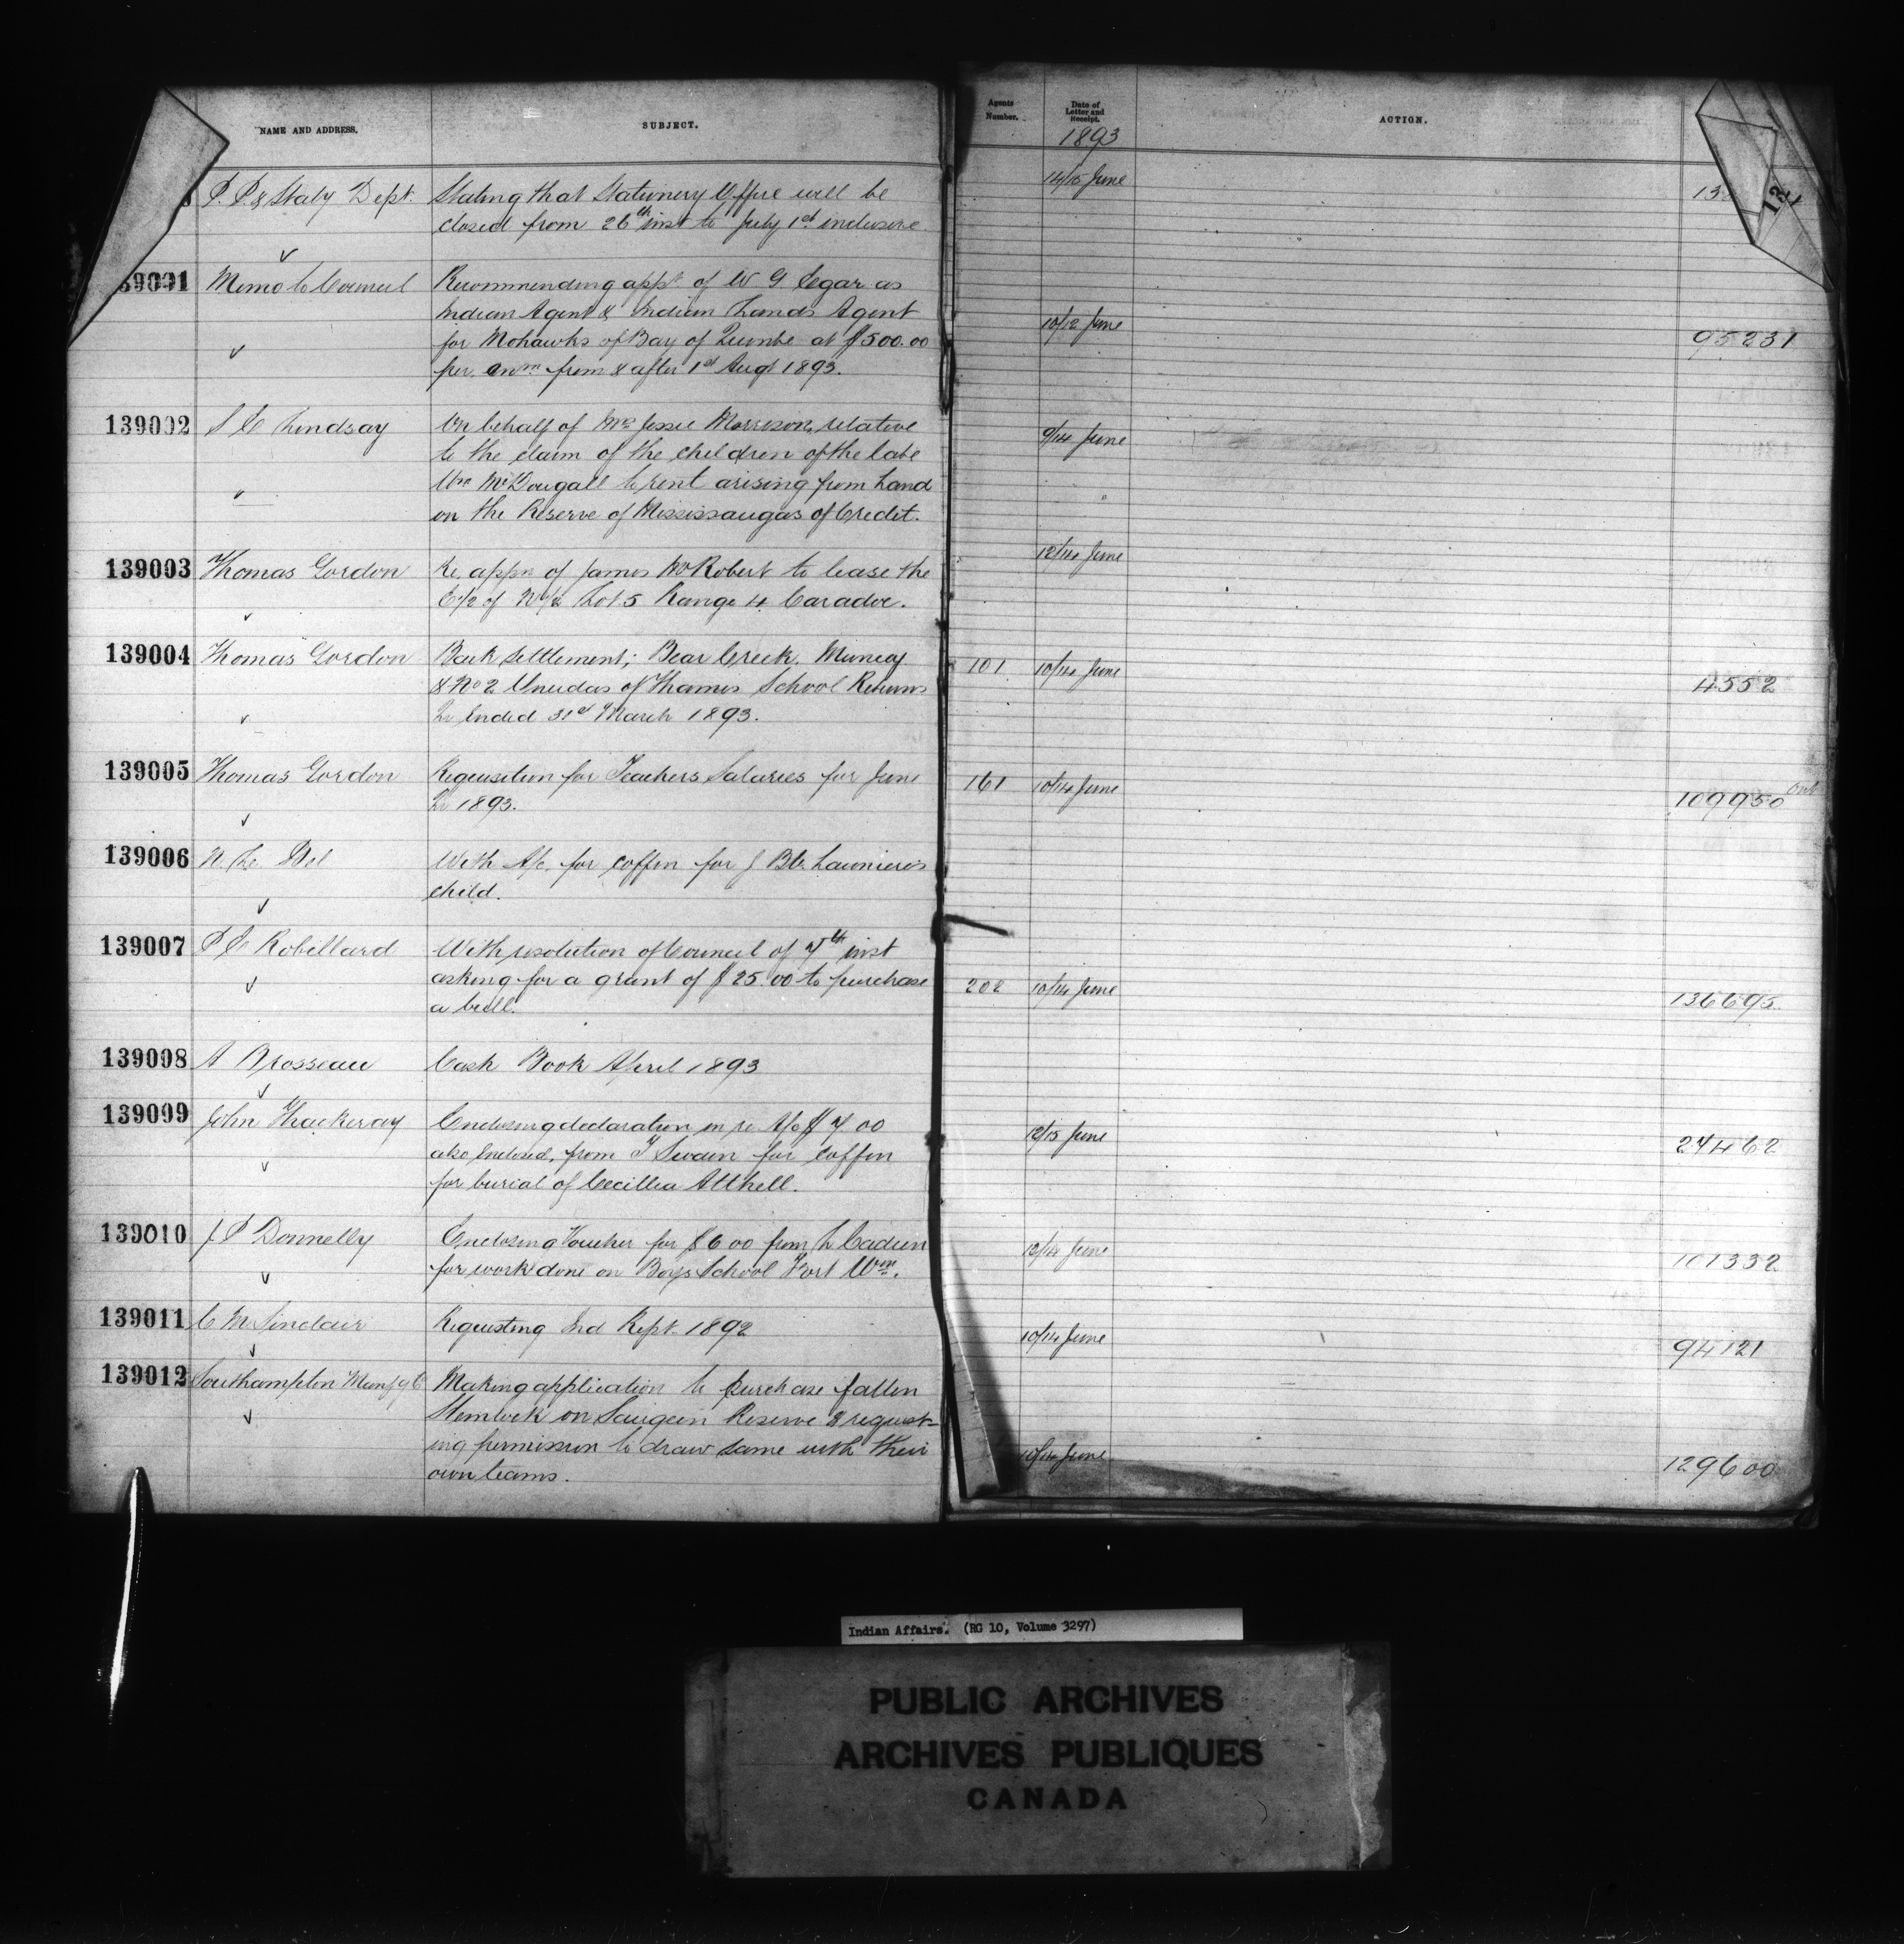 NAME AND ADDRESS.
SUBJECT.
Agents Number.
Date of Letter and Receipt.
ACTION.
1893
P. P. & Staty Dept.
Stating that Stationery Office will be
closed from 26th inst to July 1st inclusive.
14/15 June
13
12
39001
Memo to Council
Recommending appt. of W G Egar as
Indian Agent & Indian Lands Agent
for Mohawks of Bay of Quinte at $500.00
per. annm from & after 1st Augt 1893.
10/12 June
95231
139002
S C Lindsay
On behalf of Mrs Jessie Morrison, relative
to the claim of the children of the late
Wm McDougall to rent arising from Land
on the Reserve of Mississaugas of Credit.
9/14 June
139003
Thomas Gordon
Re. appn of James McRobert to lease the
E 1/2 of N 1/2 Lot 5 Range 4 Caradoc.
12/14 June
139004
Thomas Gordon
Back Settlement; Bear Creek. Muncey
& No 2 Oneidas of Thames School Returns
Qr Ended 31st March 1893.
101
10/14 June
4552
139005
Thomas Gordon
Requisition for Teachers Salaries for June
Qr 1893.
161
10/14 June
109950
139006
N. Le Bel
With A/c. for coffin for J Bte. Launiere's
child.
139007
P E Robillard
With resolution of Council of 7th inst
asking for a grant of $25.00 to purchase
a bull.
202
10/14 June
136695
139008
A Brosseau
Cash Book April 1893
139009
John Thackeray
Enclosing declaration in re A/c $7.00
also enclosed, from T Swain for coffin
for burial of Cecillia Attkell.
12/15 June
27462
139010
J P Donnelly
Enclosing Voucher for $6 00 from L Cadieu
for work done on Boys School Fort Wm.
12/14 June
101332
139011
C McSinclair
Requesting Ind Rept. 1892
10/14 June
94121
139012
Southampton Manfg Co
Making application to purchase fallen
Hemlock on Saugeen Reserve & request-
ing permission to draw same with their
own teams.
10/14 June
129600
Indian Affairs. (RG 10, Volume 3297)
PUBLIC ARCHIVES
ARCHIVES PUBLIQUES
CANADA